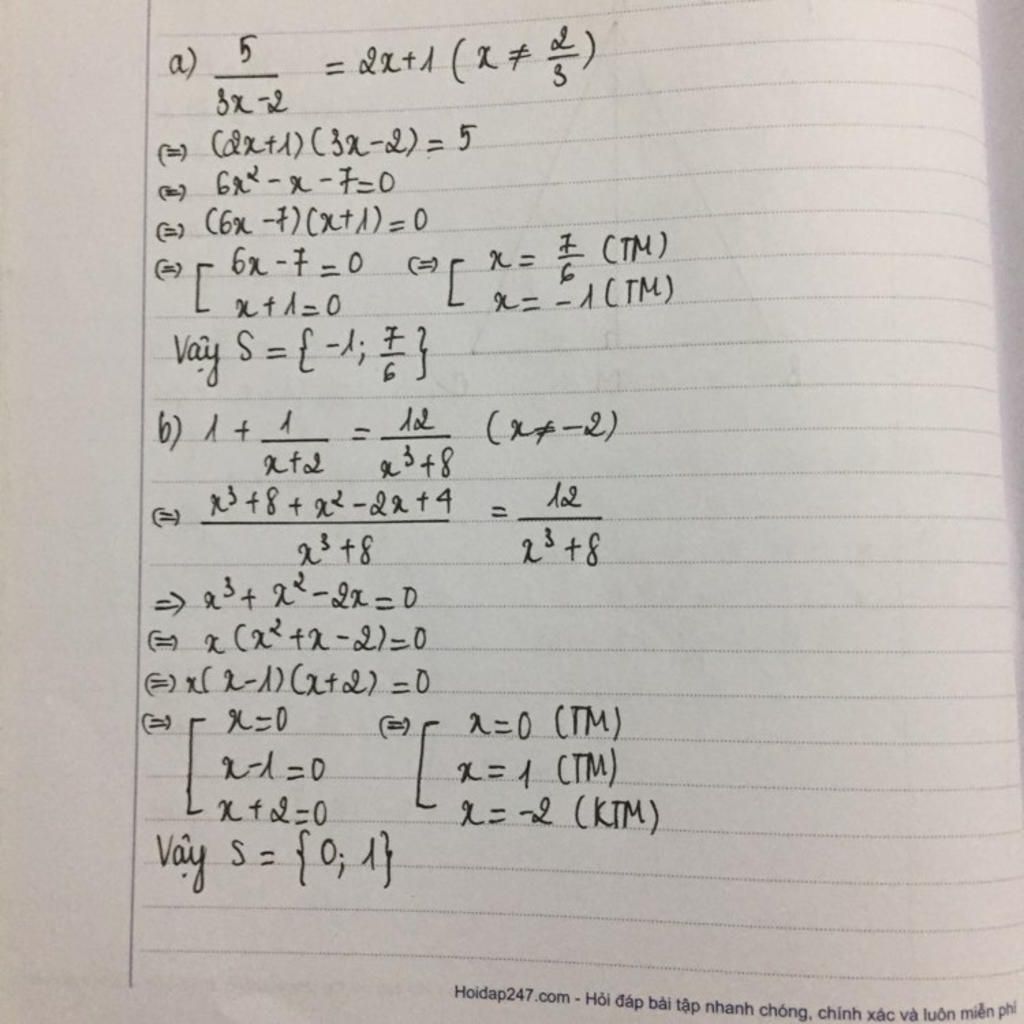 a) 5/(3x-2) = 2x+1 ( x ≠ 2/3 )
(=) (2x+1)(3x-2) = 5
(=) 6x² - x - 7 = 0
(=) (6x - 7)(x+1) = 0
(=) [ 6x - 7 = 0 (=) [ x = 7/6 (TM)
x + 1 = 0 x = -1 (TM)
Vậy S = { -1; 7/6 }
b) 1 + 1/(x+2) = 12/(x³+8) (x ≠ -2)
(=) (x³ + 8 + x² - 2x + 4)/(x³ + 8) = 12/(x³ + 8)
=> x³ + x² - 2x = 0
(=) x (x² + x - 2) = 0
(=) x( x - 1)(x+2) = 0
(=) [ x = 0 (=) [ x = 0 (TM)
x - 1 = 0 x = 1 (TM)
x + 2 = 0 x = -2 (KTM)
Vậy S = { 0; 1 }
Hoidap247.com - Hỏi đáp bài tập nhanh chóng, chính xác và luôn miễn phí